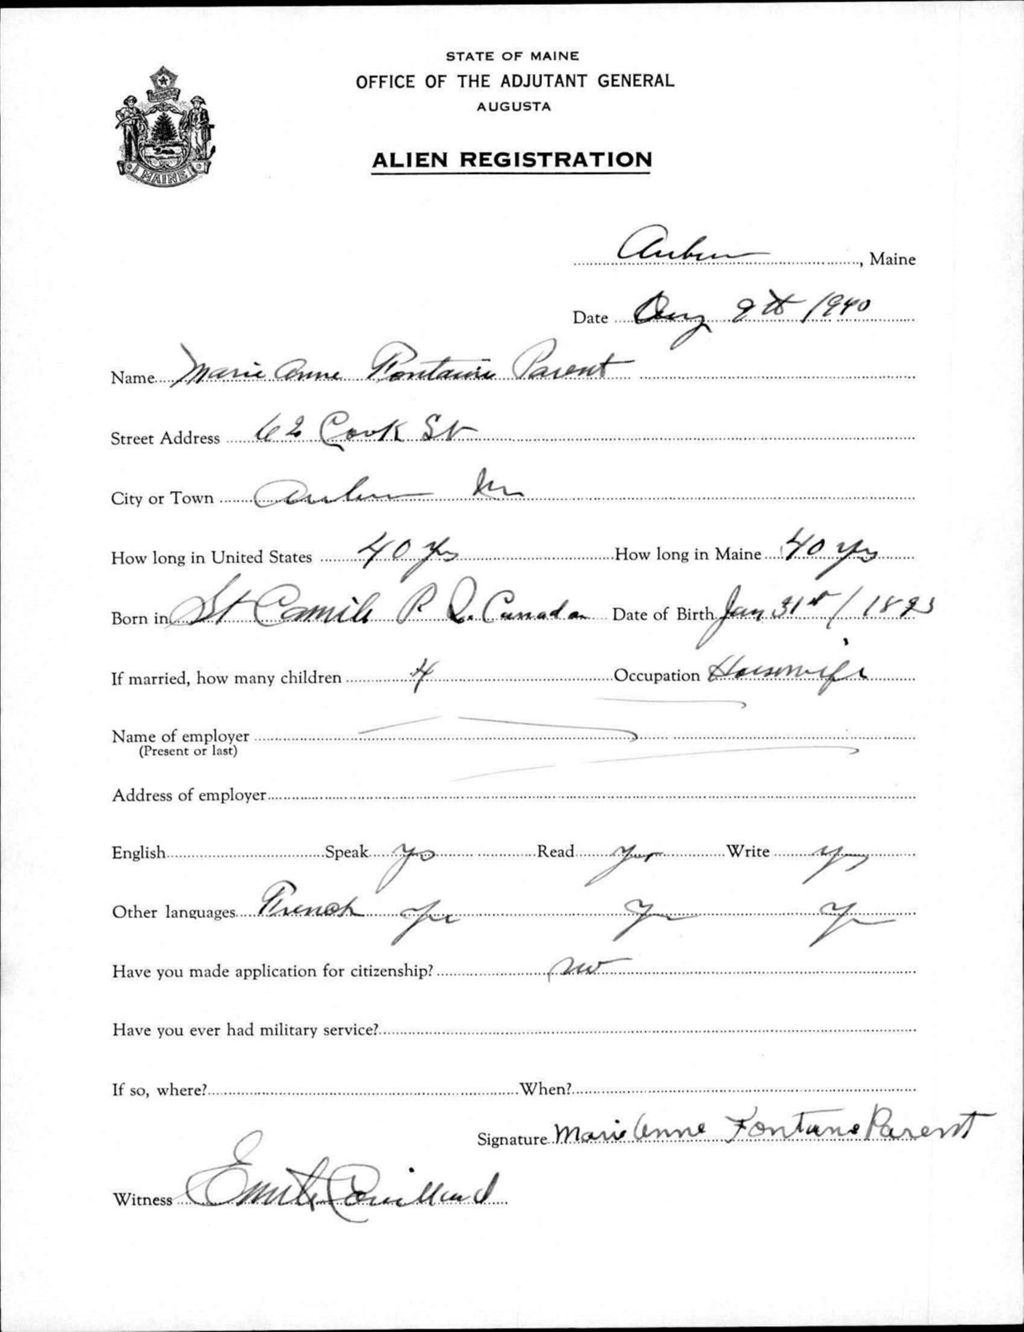 STATE OF MAINE
OFFICE OF THE ADJUTANT GENERAL
AUGUSTA
ALIEN REGISTRATION
MAINE
Auburn, Maine
Date Aug 9th 1940
Name Marie Anne Fontaine Parent
Street Address 62 Cook St
City or Town Auburn Me
How long in United States 40 yrs How long in Maine 40 yrs
Born in St Camile P. Q. Canada Date of Birth Jan 31st / 1893
If married, how many children 4 Occupation Housewife
Name of employer
(Present or last)
Address of employer
English Speak Yes Read Yes Write Yes
Other languages French Yes Yes Yes
Have you made application for citizenship? no
Have you ever had military service?
If so, where? When?
Signature Marie Anne Fontaine Parent
Witness Emile Couillard